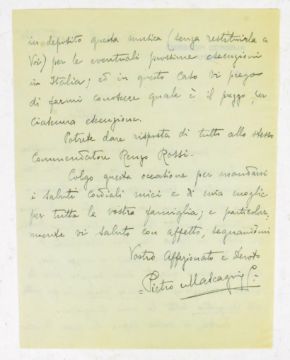 in deposito questa musica (senza restituirla a
Voi) per le eventuali prossime esecuzioni
in Italia; ed in questo caso Vi prego
di farmi conoscere quale è il prezzo per
ciascuna esecuzione.
Potrete dare risposta di tutto allo stesso
Commendatore Renzo Rossi.
Colgo questa occasione per mandarvi
i saluti cordiali miei e di mia moglie
per tutta la vostra famiglia; e particolar-
mente Vi saluto con affetto, segnandomi
Vostro Affezionato e Devoto
Pietro Mascagni